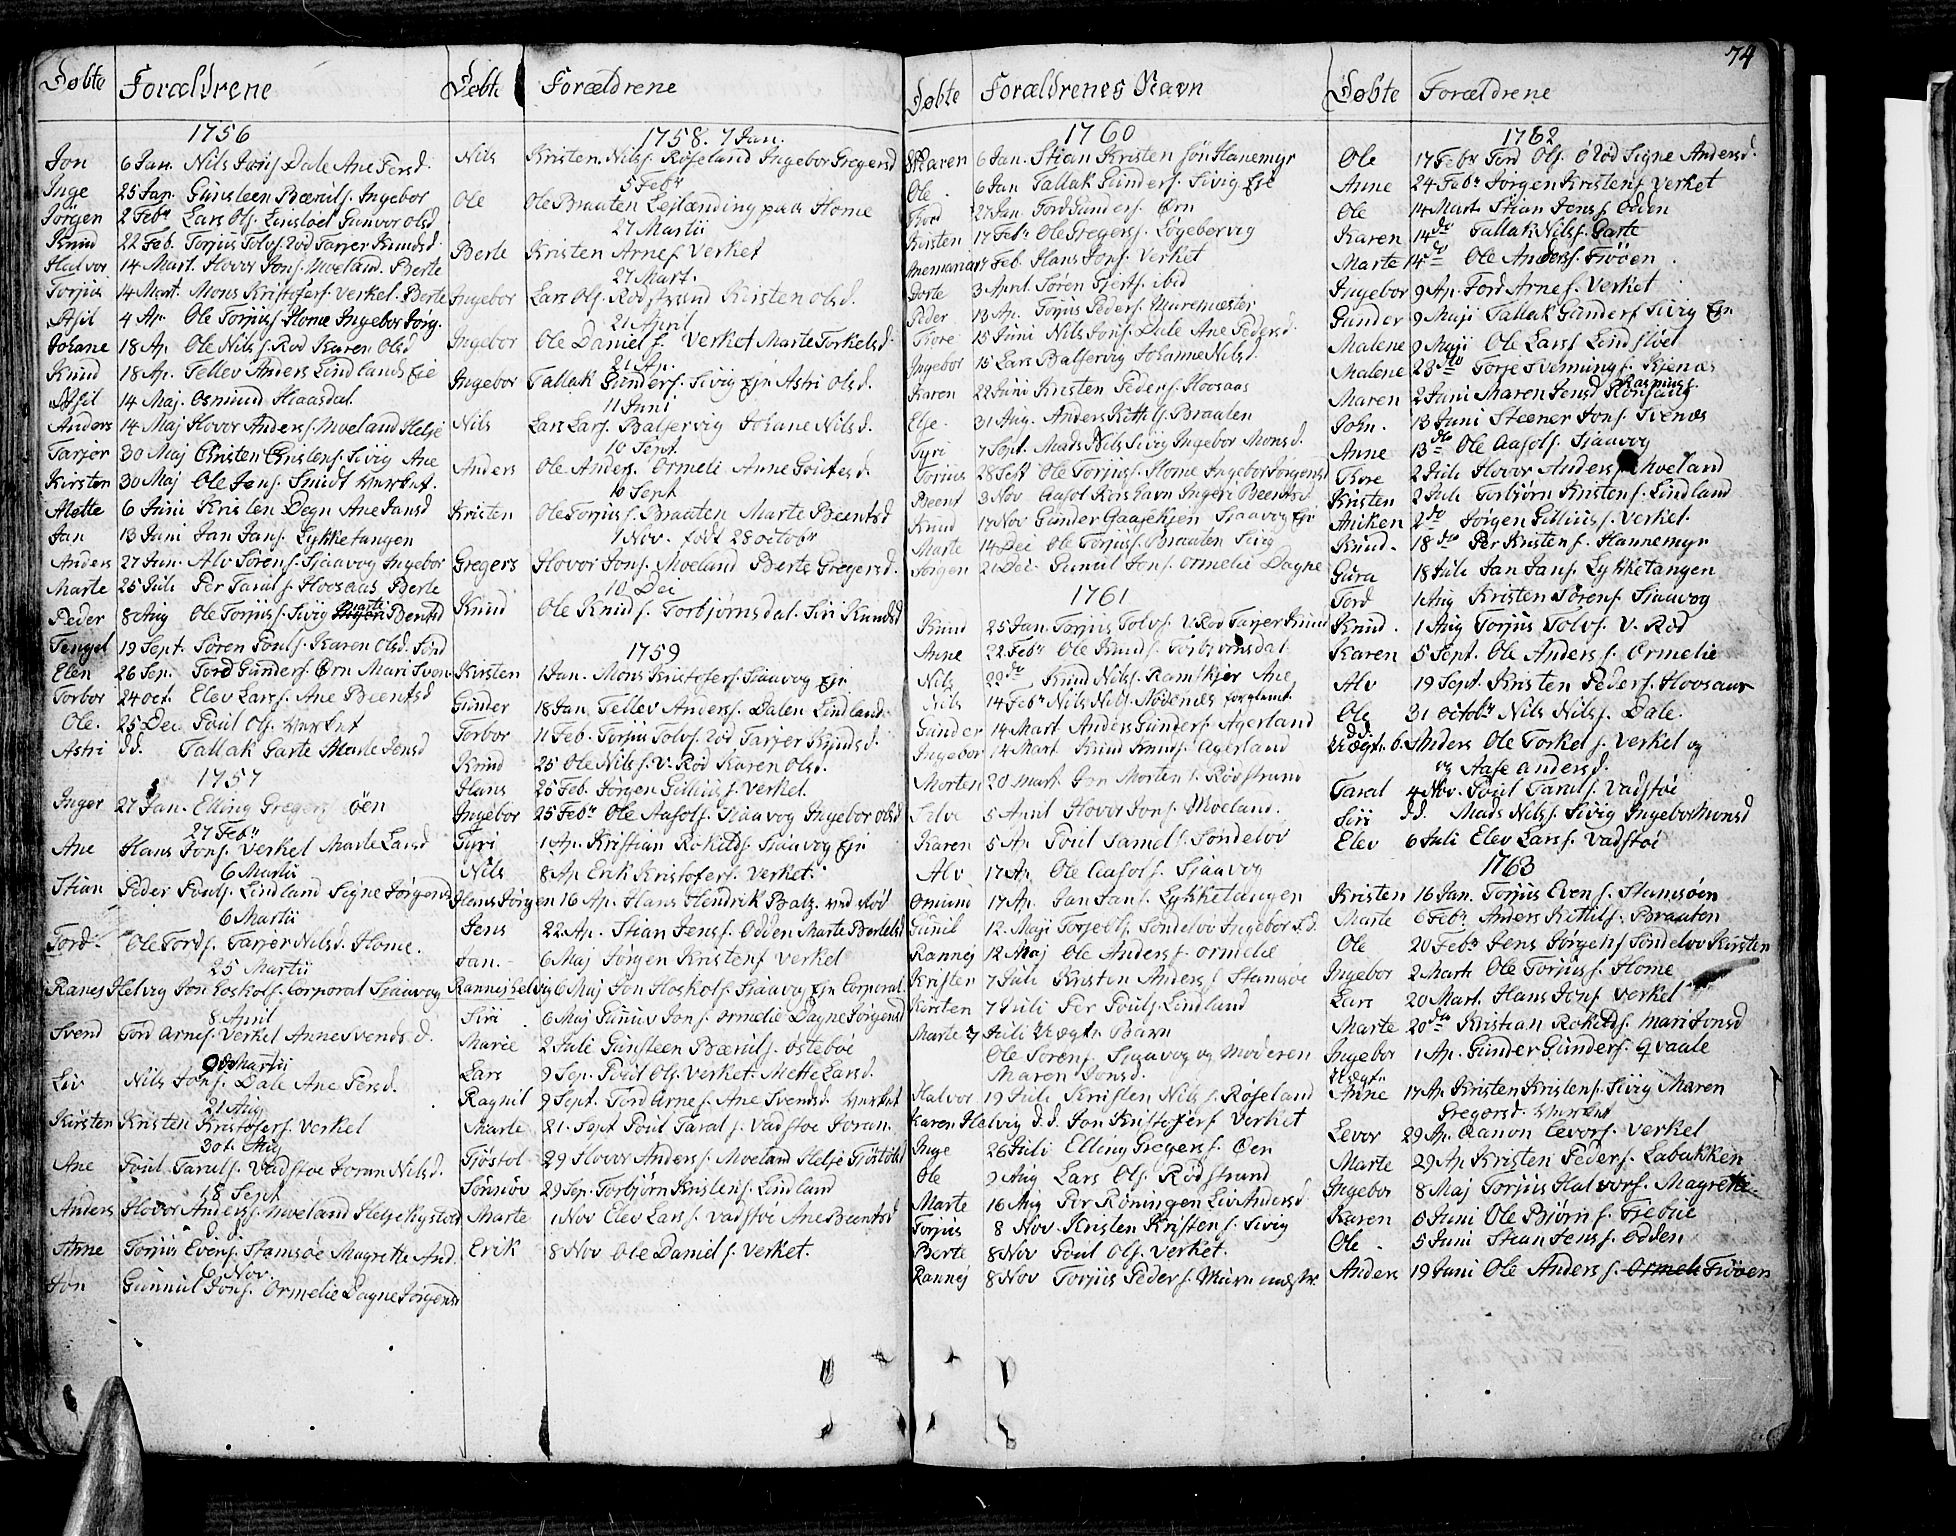 74
Døbte Forældrene
1756
Jon 6 Jan. Nils Jons. Dale Ane Persd.
Inge 25 Jan. Gunsteen Bæruls. Ingebor
Jørgen 2 Febr Lars Ols. Linsloet Gunvor Olsd
Knud 22 Feb. Torjus Tolvs. rød Tarjer Knudsd.
Halvor 14 Mart. Hovor Jons. Moeland. Berte
Torjus 14 Mart. Mons Kristofers. Verket. Berte
Asil 4 Ap. Ole Torjus s. Home Ingebor Jørg.
Johane 18 Ap. Ole Nils s. Rod Karen Olsd
Knud 18 Ap. Tellev Anders Lindlands Eie
Asil 14 Maj. Osmund Haasdal
Anders 14 Maj Hovor Anders s. Moeland Helje
Tarjer 30 Maj Christen Christens. Sivig Ane
Kirsten 30 Maj Ole Jens. Smidt Verket.
Alette 6 Juni Kristen Degn Ane Jansd
Jan 13 Juni Jan Jans. Lykketangen
Anders 27 Jun. Alv Sørens. Sjaavog Ingebor
Marte 25 Juli Per Taruls. Hoosaas Berte
Peder 8 Aug Ole Torjus s. Sivig Marte Bentsd
Tengel 19 Sept. Søren Pouls. Karen Olsd.
Elen 26 Sep. Tord Gunders. Ørn Mari Sven
Torbor 24 oct. Elev Lars s. Ane Beentsd
Ole. 25 Dec. Poul Ols. Verket
Astri d.d. Tallak Garte Marte Jensd
1757
Inger 27 Jan. Elling Gregers s. Øen
27 Febr
Ane Hans Jons. Verket Marte Larsd
6 Martii
Stian Peder Pouls. Lindland Signe Jørgensd
6 Martii
Tord Ole Tords. Tarjer Nilsd. Home.
25 Martii
Ranei Helvig Jon Hoskols. Corporal Sjaavog
8 April
Svend Tord Arnes. Verket Anne Svends d.
28 Martii
Liv Nils Jons. Dale Ane Persd.
21 Aug
Kirsten Kristen Kristofers. Verket
30t. Aug
Ane Poul Taruls. Vadstoe Joran Nilsd.
18 Sept
Anders Hovor Anders. Moeland Helje Kjøstolsd
d. d.
Anne Torjus Evens. Stamsøe Magrette And.
6 Nov.
Jon Gunnul Jons. Ormelie Dagne Jørgensd
Døbte Forældrene
1758. 7 Jan.
Nils Kristen Nils s. Røseland Ingebor Gregersd
5 Febr
Ole Ole Braaten Lejlænding paa Home
27 Martii
Berte Kristen Arnes. Verket
27 Mart.
Ingebor Lars Ols. Rødstrand Kirsten Olsd.
21 April
Ingebor Ole Daniel s. Verket Marte Torkelsd.
21 Ap.
Ingebor Tallak Gunders. Sivig Eje Astri Olsd.
11 Juni
Nils Lars Lars. Baltservig Johane Nilsd.
10 Sept.
Anders Ole Anders. Ormeli Anne
10 Sept
Kristen Ole Torjus s. Braaten Marte Beentsd
1 Nov. født 28 octobr
Gregers Hovor Jons. Moeland Berte Gregersd.
10 Dec
Knud Ole Knuds. Torbjørnsdal. Siri Knudsd
1759
Kirsten 1 Jan. Mons Kristofers. Sjaavog Eje
Gunder 18 Jan Tellev Anders s. Dalen Lindland
Torbor 11 Feb. Torjus Tolvs. rød Tarjer Knudsd.
Knud 25 Ole Nils s. V. Rød Karen Olsd.
Hans 25 Feb. Jørgen Gillius s. Verket.
Ingebor 25 Febr Ole Aasols. Sjaavog Ingebor Olsd
Tyri 1 Ap. Kristian Roketds. Sjaavog Eje
Nils 8 Ap Erik Kristofers. Verket.
Hans Jørgen 16 Ap. Hans Hendrik Balz. ved slod
Jens 22 Ap. Stian Jens s. Odden Marte Bertelsd
Jan. 6 Maj Jørgen Kristens Verket
Rannei Helvig 6 Maj Jon Hoskols. Sjaavog Eje Corporal
Siri 6 Maj Gunuv Jons. Ormelie Dagne Jørgensd
Marie 2 Juli Gunsteen Bæruls. Østebøe
Lars 9 Sep. Poul Ols. Verket. Mette Larsd.
Ragnil 9 Sept. Tord Arnes. Ane Svends d. Verket
Marte 21. Sept Poul Taral s. Vadstoe Joran.
Tjøstol 29 Hovor Anders s. Moeland Helje Tjøstolsd
Sønnøv 29 Sep. Torbjørn Kristens. Lindland
Marte 1 Nov Elev Lars s. Vadstøe Ane Beentsd
Erik 8 Nov Ole Daniel s. Verket.
Døbte Forældrenes Navn
1760
Maren 6 Jan. Stian Kristen søn Hanemyr
Ole 6 Jan Tallak Gunders. Sivig Eje
Tord 27 Jan. Tord Gunders. Ørn
Kirsten 17 Febr Ole Gregers. Løgebervig
Anemaria 17 Feb. Hans Jons. Verket
Dorte 3 April Søren Gjerts. ibid
Peder 13 Ap. Torjus Peders. Muremæster
Tore 15 Juni Nils Jons. Dale Ane Pedersd.
Ingebor 15 Lars Balservig Johanne Nilsd.
Karen 22 Juni Kristen Peders. Hoosaas
Else. 31 Aug. Anders Kittils. Braaten
Tyri 7 Sept. Mads Nils Sivig Ingebor Monsd.
Torius 28 Sept Ole Torjus s. Home Ingebor Jørgensd
Beent 3 Nov Aasol Kirshavn Ingeri Beentsd
Knud 17 Nov Gunder Gaasekjen Sjaavog Eje
Marte 14 Dec Ole Torjus s. Braaten Sivig
Jørgen 21 Dec. Gunul Jons. Ormelie Dagne
1761
Knud 25 Jan. Torjus Tolvs. V. Rød Tarjer Knud
Anne 22 Febr Ole Knuds. Torbjørnsdal
Nils 22 do Knud Nils s. Ramskjer Ane
Nils 14 Febr Nils Nils s. Mødenæs forglemt
Gunder 14 Mart Anders Gunders. Agerland
Ingebor 14 Mart Knud Knuds. Agerland
Morten 20 Mart Gon Morten s. Rødstrand
Selvi 5 April Hovor Jons. Moeland.
Karen 5 Ap Poul Samel s. Søndelov
Alv 17 Ap. Ole Aasols. Sjaavog
Omund 17 Ap. Jan Jans. Lykketangen
Gunil 12. Maji Torje Ols. Søndelov Ingebor J.d.
Rannej 12 Maj Ole Anders s. Ormelie
Kristen 7 Juli Kristen Anders s. Stamsøe
Kirsten 7 Juli Per Pouls. Lindland
Marte 7 Juli Uægte Barn
Ole Sørens. Sjaavog og Moderen
Maren Jonsd.
Halvor 19 Juli Kristen Nils s. Røseland
Karen Helvig d.d. Jon Kristofers Verket
Inge 26 Juli Elling Gregers s. Øen
Ole 2 Aug Lars Ols. Rødstrand
Marte 16 Aug Per Røningen Liv Andersd
Torjus 8 Nov. Kristen Kristens. Sivig
Berte 8 Nov Poul Ols. Verket.
Rannej 8 Nov Torjus Peder s. Murmestr
Døbte Forældrene
1762
Ole 17 Febr Tord Ols. Ø. Rød Signe Andersd.
Anne 24 Febr Jørgen Kristens Verket
Ole 14 Mart Stian Jens s. Odden
Karen 14 do Tallak Nils s. Garte
Marte 14 do Ole Anders s. Trøen
Ingebor 9 Ap. Tord Arnes. Verket
Gunder 9 Maji Tallak Gunders Sivig Eje
Malene 9 Maji Ole Lars s Lindsløet
Malene 23 do Torje Svennings s. Kjenæs
Maren 2 Juni Maren Jensd Rønsang Rasmuss.
John. 13 Juni Steener Jons. Sivnæs
Anne 13 do Ole Aasols. Sjaavog
Tore 2 Juli Hovor Anders s Moeland
Kristen 2 Juli Torbjørn Kristens. Lindland
Aniken 2 do Jørgen Gillius s. Verket.
Knud. 18 do Per Kristen s. Hannemyr
Gura 18 Juli Jan Jans. Lykketangen
Tord 1 Aug Kristen Sørens. Sjaavog
Knud. 1 Aug Torjus Tolvs. V. Rød
Karen 5 Sept. Ole Anders s. Ormelie
Alv 19 Sept. Kristen Peders. Hoosaas
Ole 31 Octobr Nils Nils s. Dale.
d.d.
Uægt. b. Anders Ole Torkel s. Verket og
og Aase Andersd.
Taral 4 Nov. Poul Taruls. Vadstøe
Siri d.d. Mads Nils s. Sivig Ingebor Monsd
Elev 6 Juli Elev Lars s. Vadstøe
1763
Kristen 16 Jan. Torjus Even s. Stamsøen
Marte 6 Febr Anders Kittils. Braaten
Ole 20 Febr Jens Jørgens Søndelov Kirsten
Ingebor 2 Marti Ole Torjus s. Home
Lars 20 Mart. Hans Jons Verket
Marte 20 do Kristian Roketds. Mari Jonsd
Ingebor 1 Ap. Gunder Gunders. Qvaale
Uægt.
Anne 17 Ap Kristen Kristens. Sivig Maren
Gregersd. Verket
Levor 29 Ap. Aanon Levors. Verket
Marte 29 Ap Kristen Peders. Labakken
Ingebor 8 Maj Torjus Halvors. Magrette.
Karen 5 Juni Ole Bjørns.
Ole 5 Juni Stian Jens s. Odden
Anders 19 Juni Ole Anders s. Ormeli Trøen